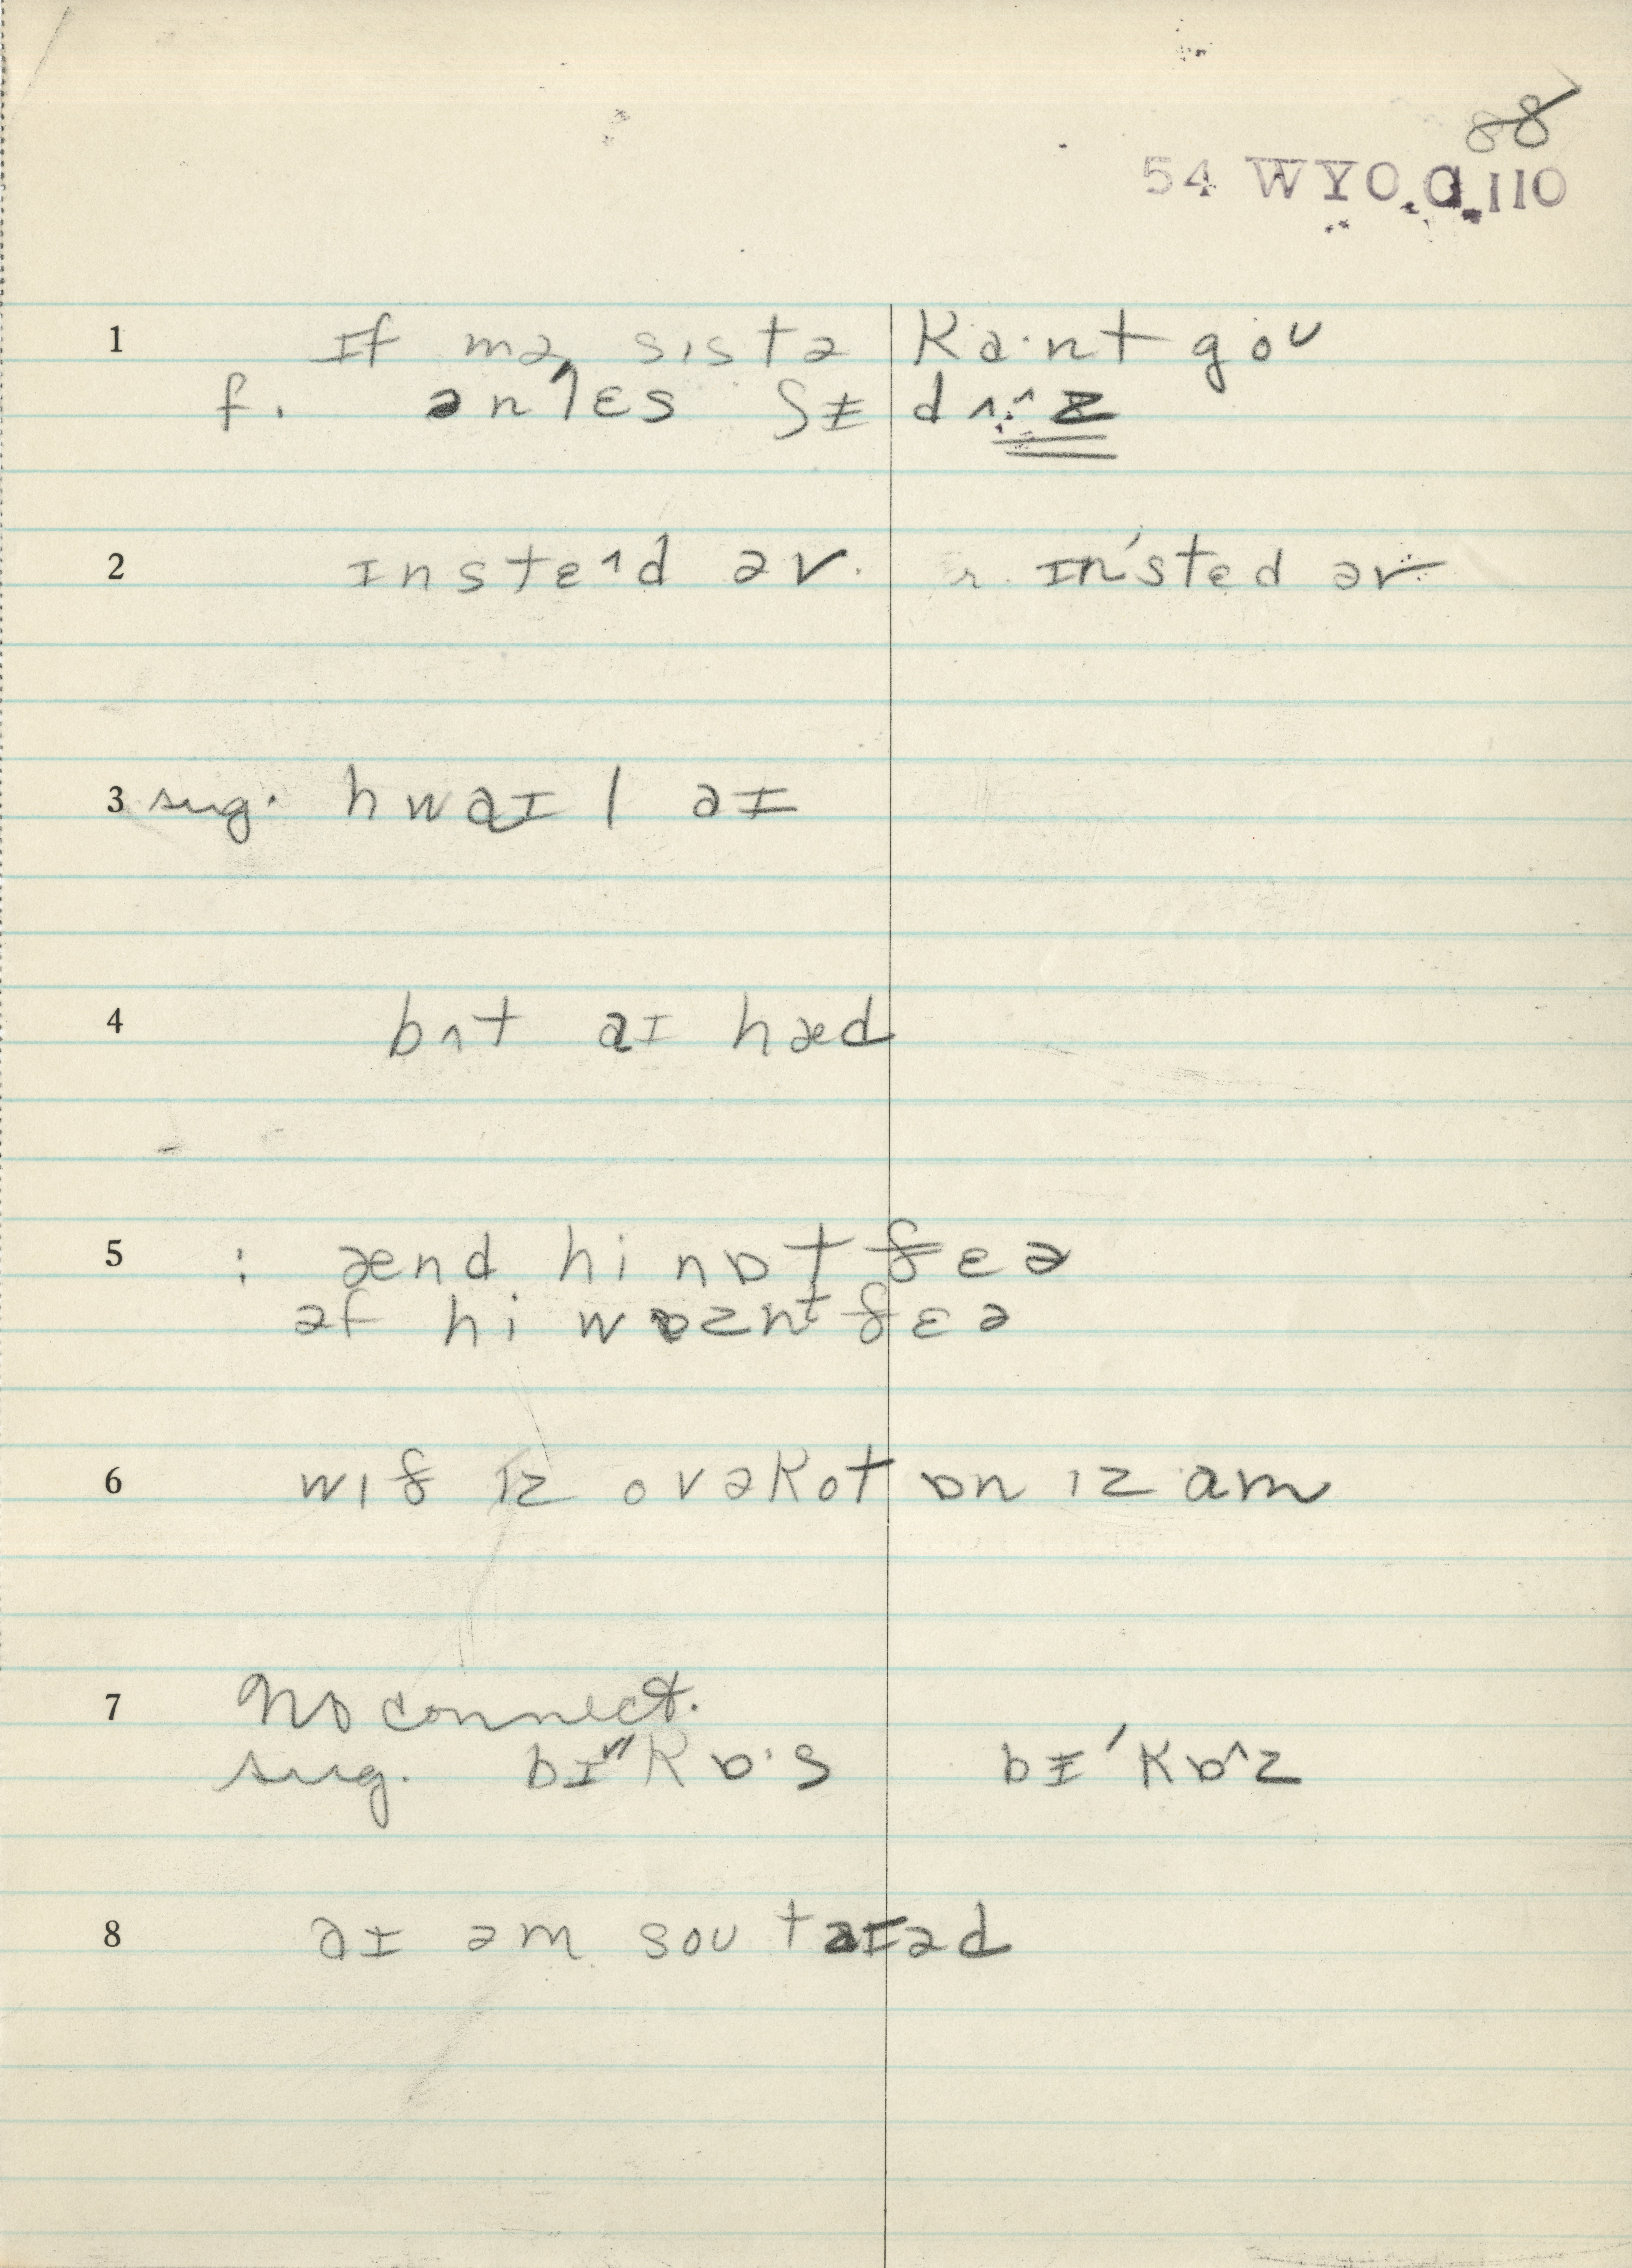 88
54 WYO.a.110
1 ɪf mə sɪstə ka·nt gou
f. ənlɛs ʃɪ dʌ^z
2 ɪnstɛ^d əv. r. ɪn'stɛd əv
3 sug. hwaɪl aɪ
4 bʌt aɪ hæd
5 : ænd hi nɒt ðɛə
əf hi wɒznt ðɛə
6 wɪð ɪz ovəkot ɒn ɪz am
7 No connect.
sug. bɪ"kɒ·s bɪ'kɒ^z
8 aɪ əm sou taɪəd